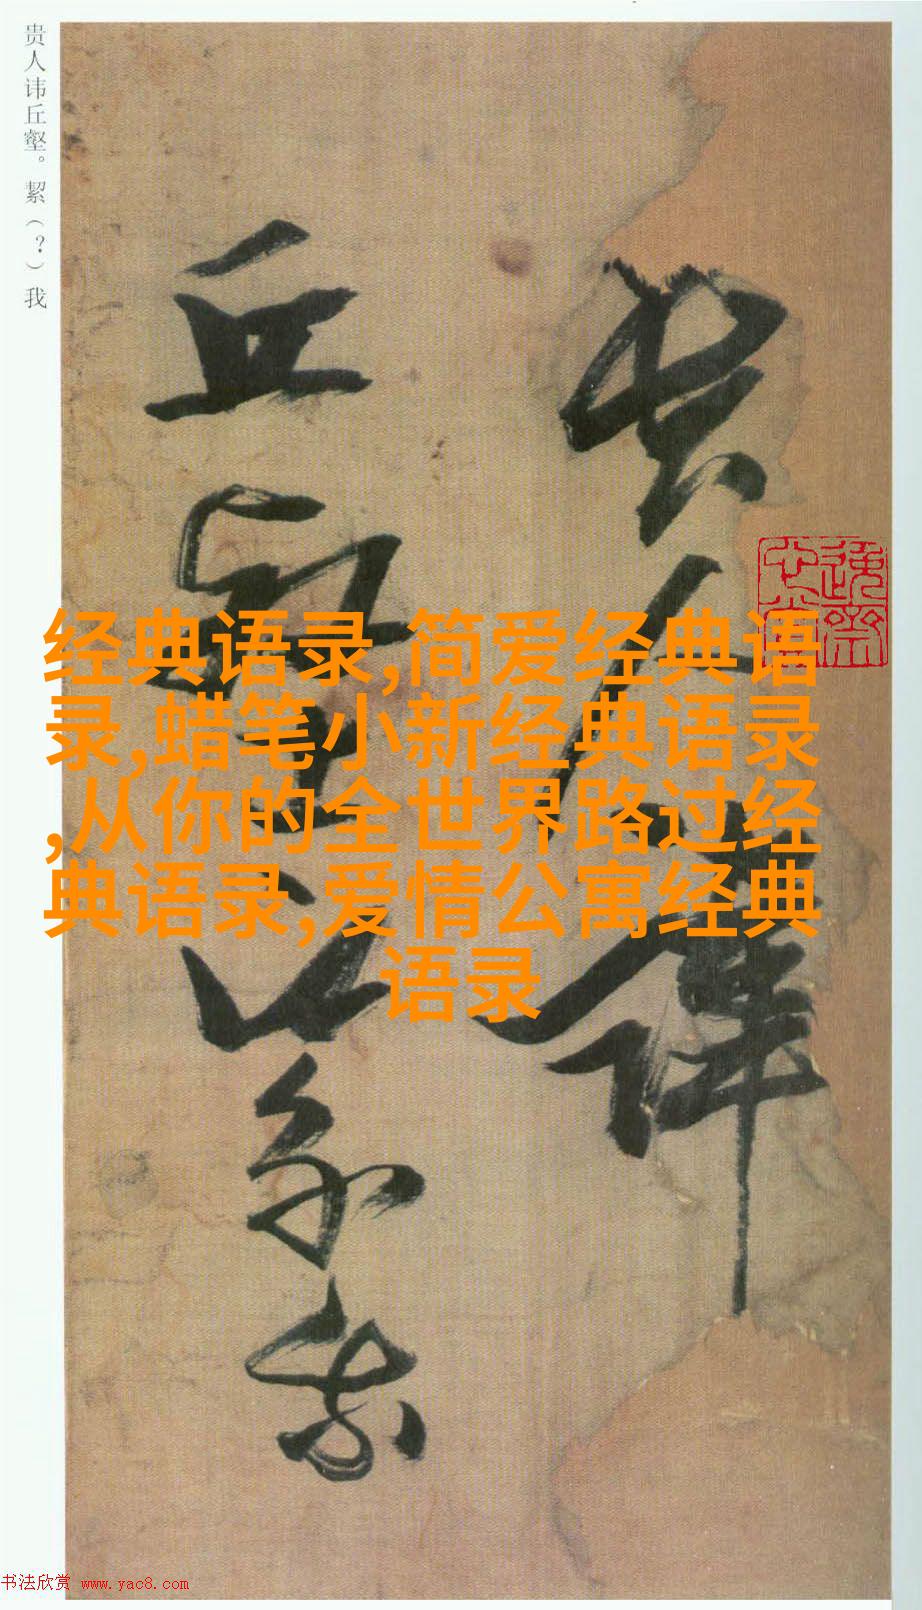 贵人讳丘壑。絜（？）我
贵人讳
丘壑
我
经典语录,简爱经典语
录,蜡笔小新经典语录
,从你的全世界路过经
典语录,爱情公寓经典
语录
书法欣赏 www.yac8.com